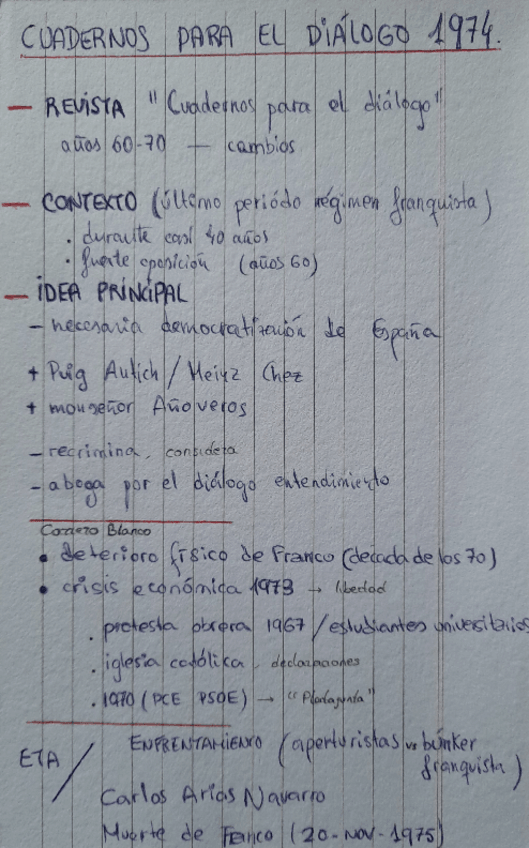 CUADERNOS PARA EL DIÁLOGO 1974.
— REVISTA "Cuadernos para el diálogo"
años 60-70 — cambios
— CONTEXTO (último periódo régimen franquista)
· durante casi 40 años
· fuerte oposición (años 60)
— IDEA PRINCIPAL
- necesaria democratización de España
+ Puig Antich / Heinz Chez
+ monseñor Añoveros
- recrimina, considera
- aboga por el diálogo entendimiento
Carrero Blanco
• deterioro físico de Franco (década de los 70)
• crisis económica 1973 → libertad
. protesta obrera 1967 / estudiantes universitarios
. iglesia católica, declaraciones
. 1970 (PCE PSOE) → "Platajunta"
ETA / ENFRENTAMIENTO (aperturistas vs búnker
franquista)
Carlos Arias Navarro
Muerte de Franco (20-NOV-1975)